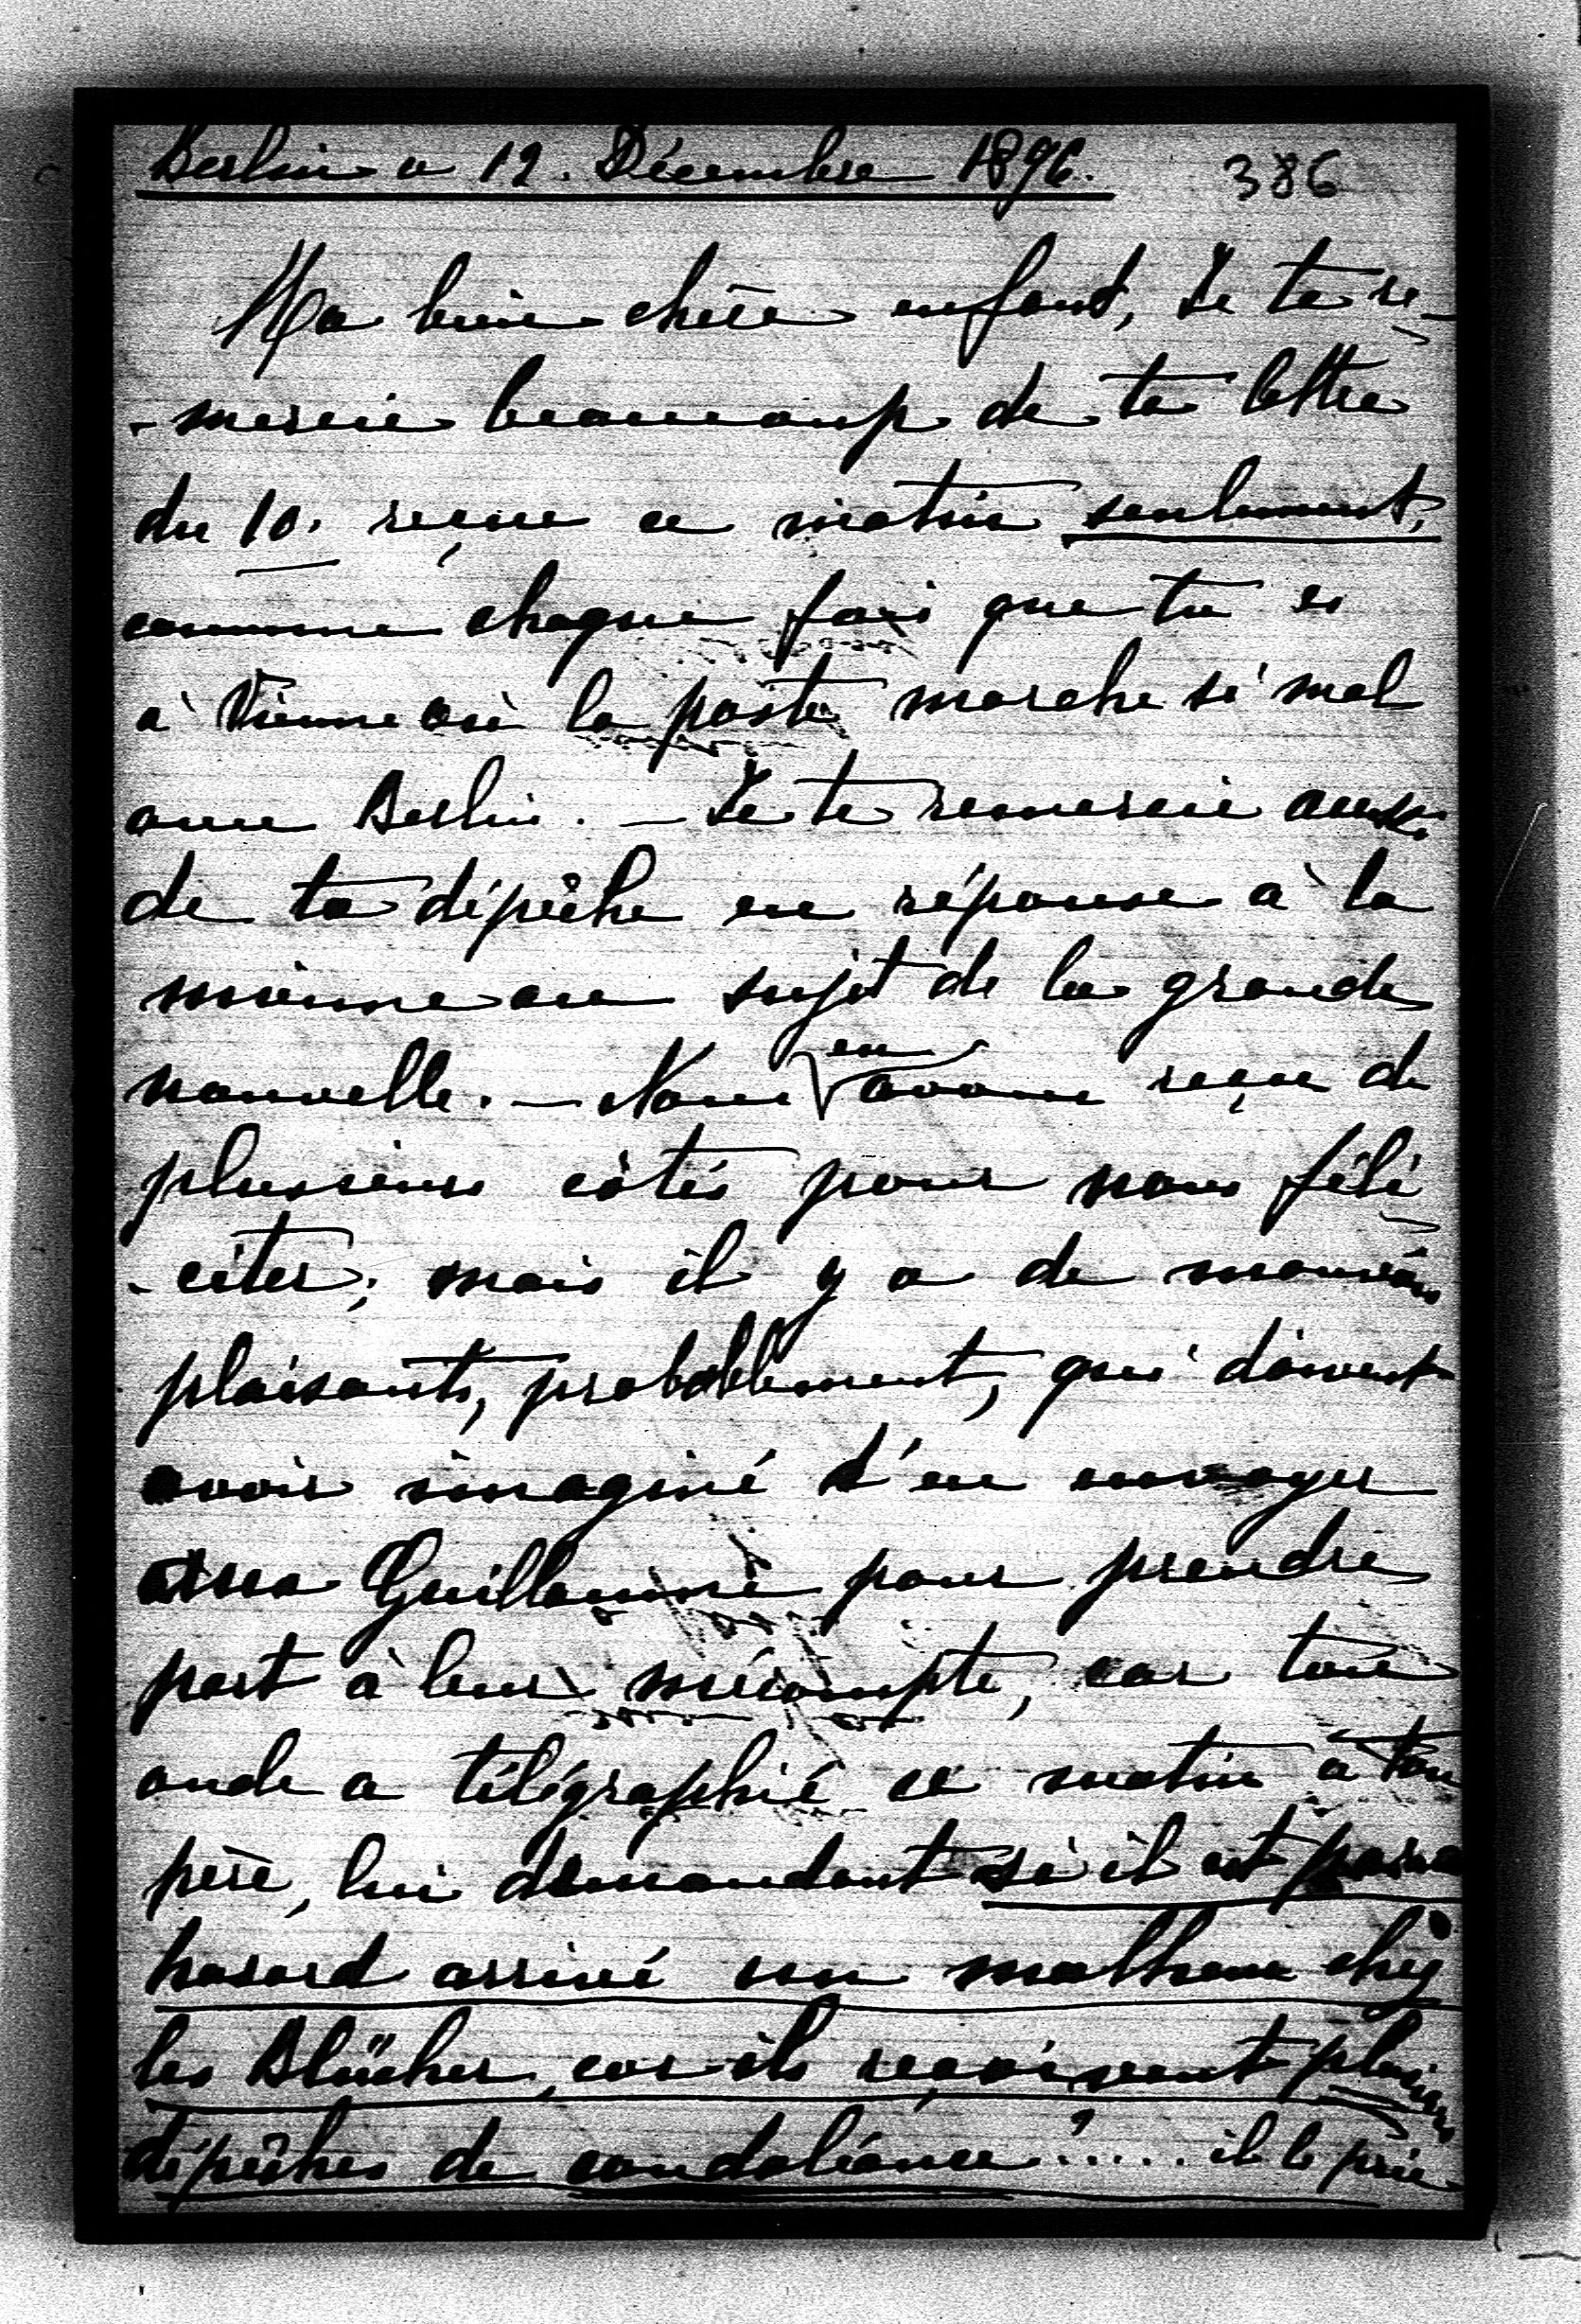 Berlin ce 12. Décembre 1896. 386
Ma bien chère enfant, Je te re-
-mercie beaucoup de ta lettre
du 10. reçue ce matin seulement,
comme chaque fois que tu es
à Vienne où la poste marche si mal
avec Berlin. — Je te remercie aussi
de ta dépêche en réponse à la
mienne au sujet de la grande
nouvelle. — Nous en avons reçu de
plusieurs côtés pour nous féli-
-citer; mais il y a de mauvais
plaisants, probablement, qui doivent
avoir imaginé d'en envoyer
aux Guillaume pour prendre
part à leur mécompte, car ton
oncle a télégraphié ce matin à ton
père, lui demandant si il est par
hasard arrivé un malheur chez
les Blücher, car ils reçoivent plusieurs
dépêches de condoléance?..... il le prie